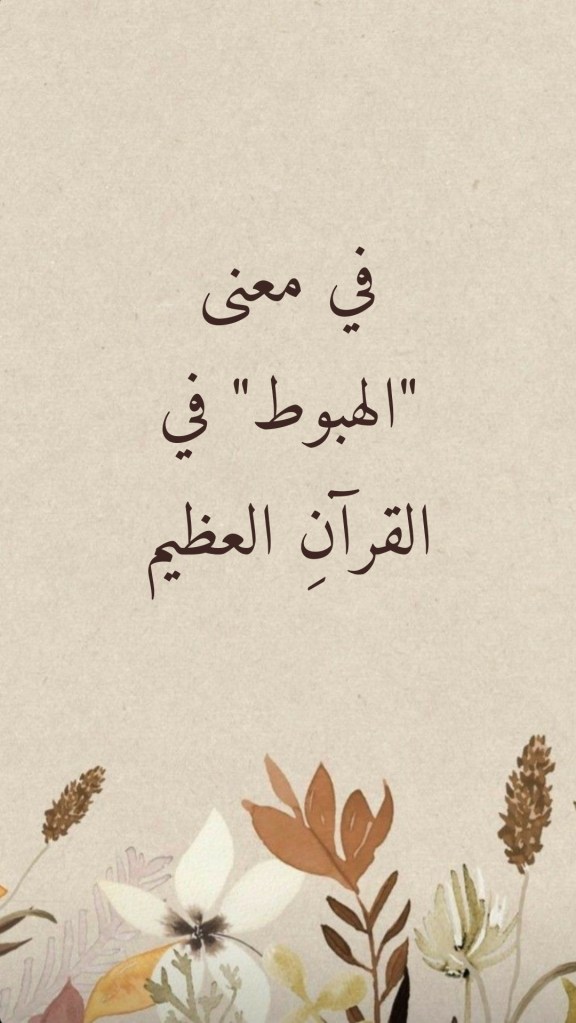 في معنى
"الهبوط" في
القرآنِ العظيم